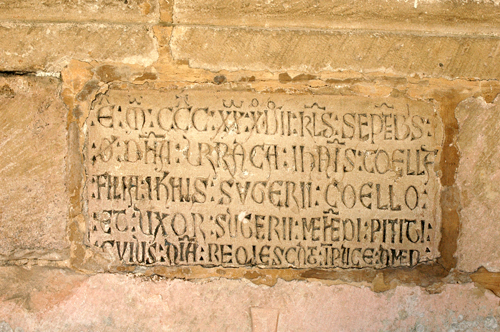 E : M : CCC : XX : XVII : KLS : SEPTEMBS :
O : DNA : URRACA : IHANIS : COELLE
FILIA : IHNIS : SUGERII : COELLO
ET : UXOR : SUGERII : MENEDI : PITITI :
CUIUS : NIA : REQIESCAT : I PACE : AMEN